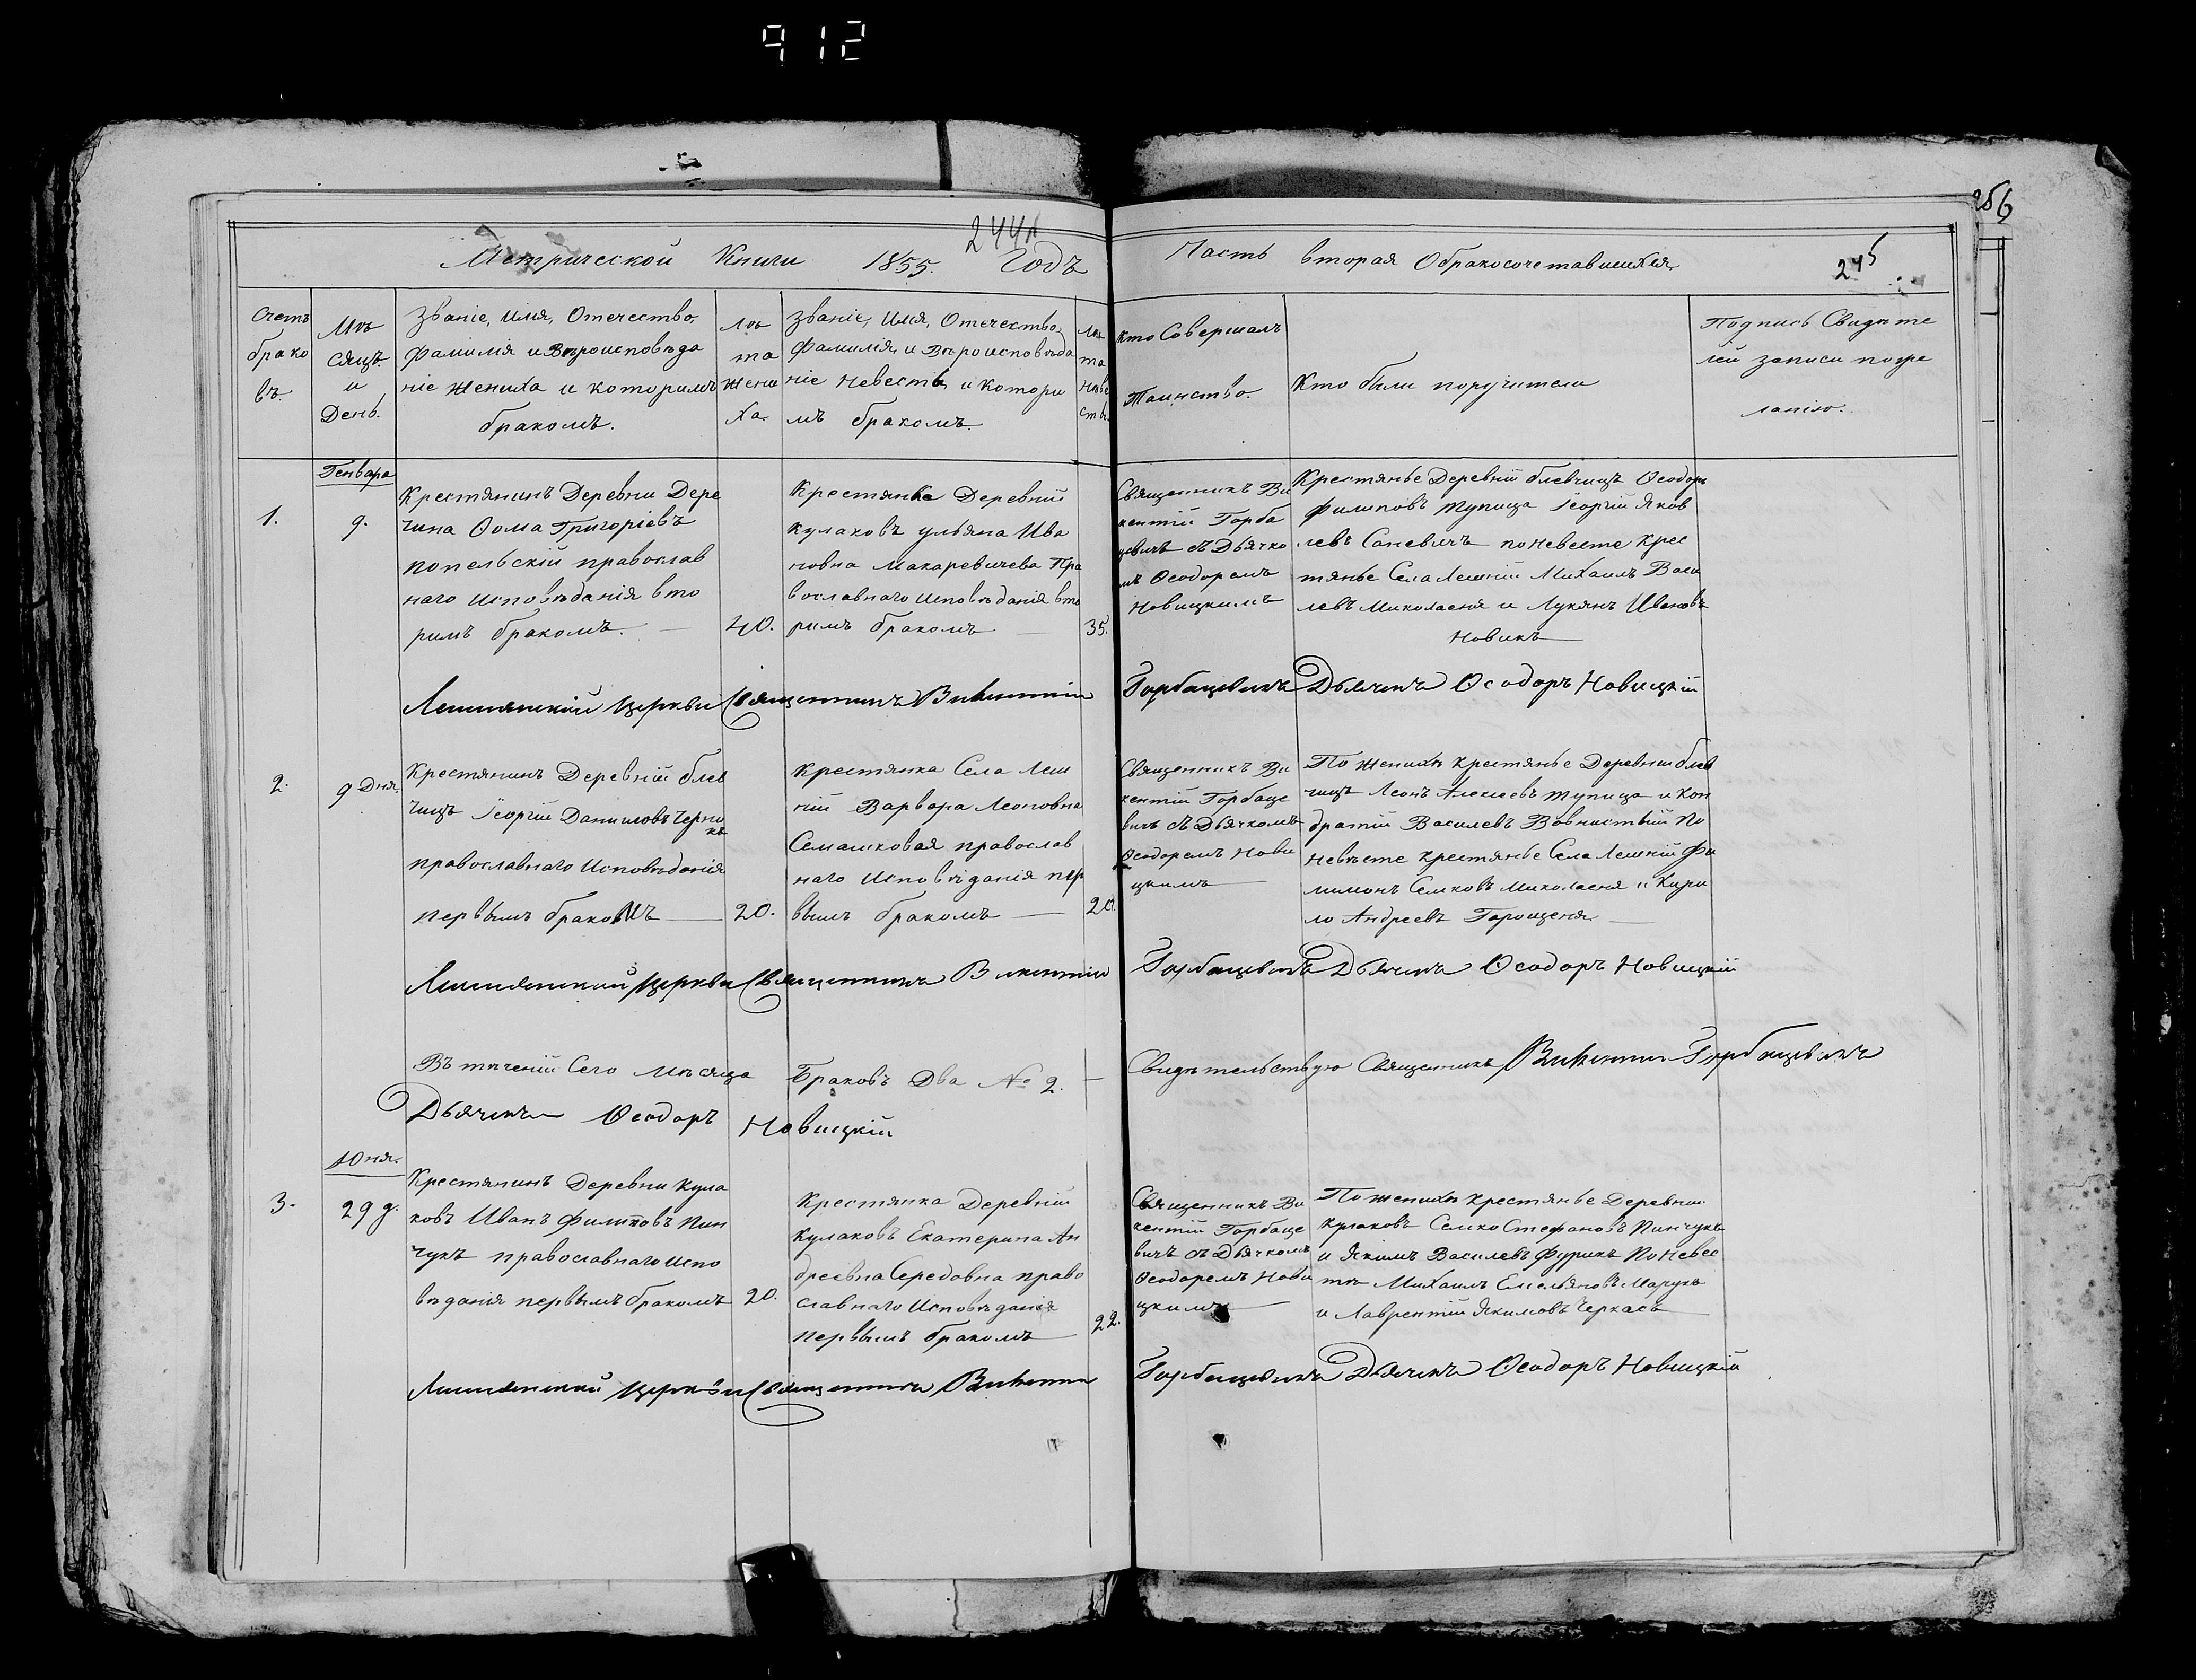 912
256
244
Метрической Книги 1855. Годъ
Часть вторая О бракосочетавшихся.
245
Счетъ
брако
въ.
Мѣ
сяцъ.
и
День.
Званіе, Имя, Отечество,
Фамилія и Вѣроисповѣда
ніе Жениха и которимъ
бракомъ.
Лѣ
та
Жени
ха.
Званіе, Имя, Отечество,
Фамилія, и Вѣроисповѣда
ніе Невесты и котори
мъ бракомъ.
Лѣ
та
Неве
сты.
Кто Совершалъ
Таинство.
Кто были поручители
Подпись Свидѣте
лей записи по же
ланію.
Генвара
1.
9.
Крестянинъ Деревни Дере
чина Ѳома Григоріевъ
попельскій православ
наго Исповѣданія вто
римъ бракомъ.
40.
Крестянка Деревній
кулаковъ ульяна Ива
новна Макаревичева Пра
вославнаго Исповѣданія вто
римъ бракомъ
35.
Священникъ Ви
кентій Горба
цевичъ съ Дьячко
мъ Ѳеодоромъ
Новицкимъ
Крестянье Деревній блевчицъ Ѳеодоръ
Филиповъ Тупица Георгій Яков
левъ Саневичъ по Невесте Крес
тянье Села Лешній Михаилъ Васи
левъ Миколаеня и Лукянъ Ивановъ
Новикъ
Лешнянской Церкви Священникъ Викентій Горбацевичъ Дьячекъ Ѳеодоръ Новицкій
2.
9 Дня.
Крестянинъ Деревній блев
чицъ Георгій Даниловъ Черно
къ
православнаго Исповѣданія
первымъ бракомъ
20.
Крестянка Села Леш
ній Варвара Леоновна
Семашковая православ
наго Исповѣданія пер
вымъ бракомъ
20.
Священникъ Ви
кентій Горбаце
вичъ съ Дьячкомъ
Ѳеодоромъ Нови
цкимъ
По Женихѣ крестянье Деревни блев
чицъ Леонъ Алексеевъ Тупица и Кон
дратій Василевъ По
Невѣсте крестянье Села Лешній Фи
лимонъ Семковъ Миколаеня и Кири
ло Андреевъ Горощеня
Лешнянской Церкви Священникъ Викентій Горбацевичъ Дьячекъ Ѳеодоръ Новицкій
Въ теченій Сего Мѣсяца Браковъ Два № 2. Свидѣтельствую Священникъ Викентій Горбацевичъ
Дьячекъ Ѳеодоръ Новицкій
Юня.
3.
29 д.
Крестянинъ Деревни Кула
ковъ Иванъ Филиповъ Пин
чукъ православнаго Испо
вѣданія первымъ бракомъ
20.
Крестянка Деревній
Кулаковъ Екатерина Ан
дреевна Середовна право
славнаго Исповѣданія
первымъ бракомъ
22.
Священникъ Ви
кентій Горбаце
вичъ съ Дьячкомъ
Ѳеодоромъ Нови
цкимъ
По женихѣ крестянье Деревни
кулаковъ Семко Стефановъ Пинчукъ
и Якимъ Василевъ Фурикъ По Невес
тѣ Михаилъ Емельяновъ Марукъ
и Лаврентій Якимовъ Черкасъ
Лешнянской Церкви Священникъ Викентій Горбацевичъ Дьячекъ Ѳеодоръ Новицкій